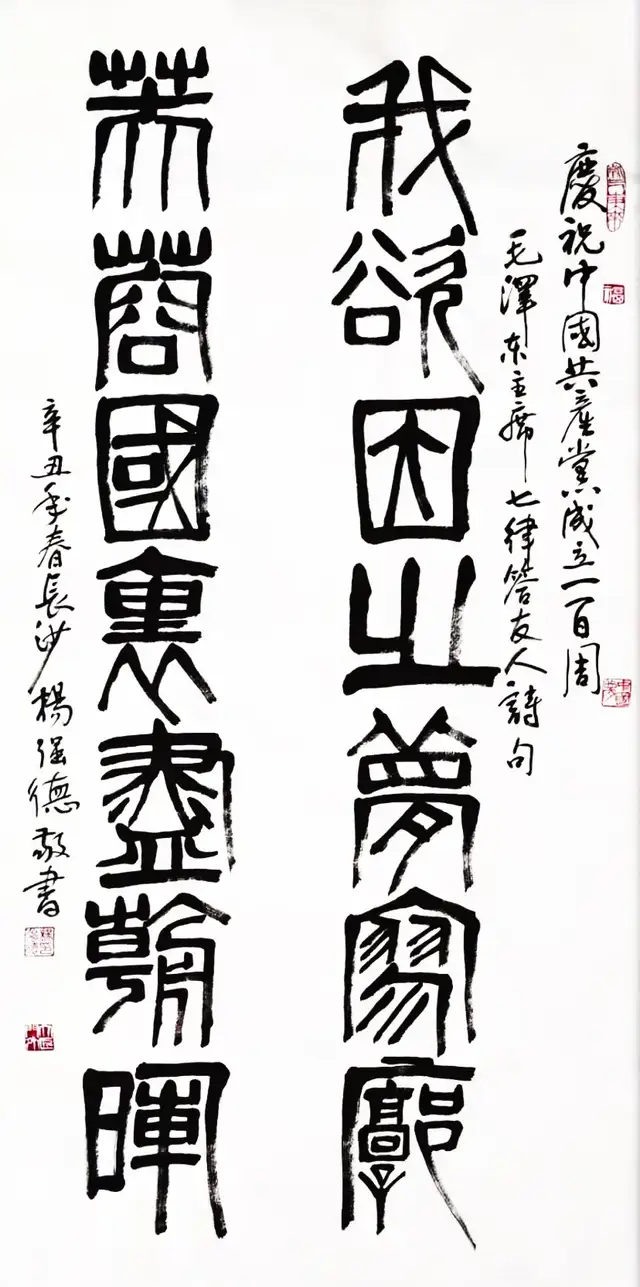 慶祝中國共產黨成立一百周
毛澤東主席七律答友人詩句
我欲因之夢寥廓
芙蓉國裏盡朝暉
辛丑年春長沙楊强德敬書
福